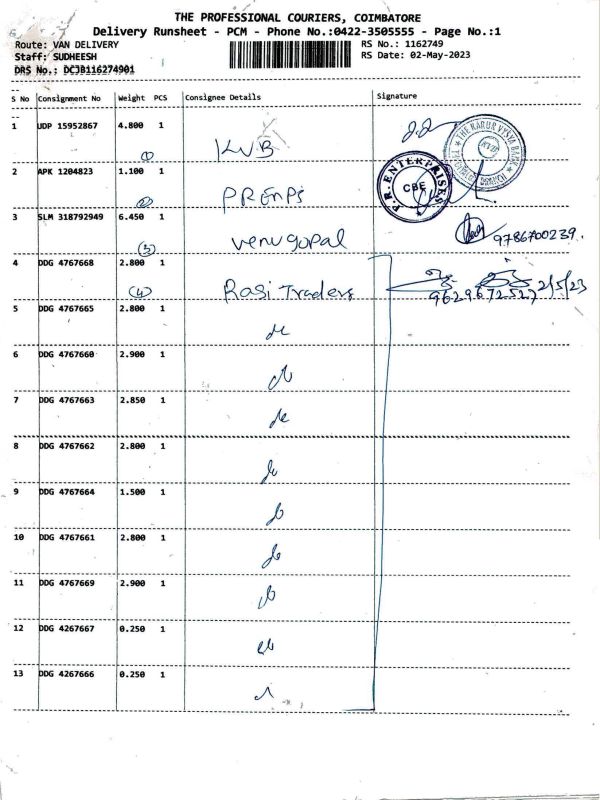 THE PROFESSIONAL COURIERS, COIMBATORE
Delivery Runsheet - PCM - Phone No.:0422-3505555 - Page No.:1
Route: VAN DELIVERY RS No.: 1162749
Staff: SUDHEESH RS Date: 02-May-2023
DRS No.: DCJB116274901
S No Consignment No Weight PCS Consignee Details Signature
1 UDP 15952867 4.800 1
(1) KVB
THE KARUR VYSYA BANK
2 APK 1204823 1.100 1
(2) PREMPS
P.R. ENTERPRISES CBE
3 SLM 318792949 6.450 1
(3) Venugopal 9786700239.
4 DDG 4767668 2.800 1
(4) Rasi Traders 9629672527 2/5/23
5 DDG 4767665 2.800 1
6 DDG 4767660 2.900 1
7 DDG 4767663 2.850 1
8 DDG 4767662 2.800 1
9 DDG 4767664 1.500 1
10 DDG 4767661 2.800 1
11 DDG 4767669 2.900 1
12 DDG 4267667 0.250 1
13 DDG 4267666 0.250 1